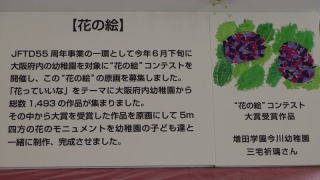 【花の絵】
JFTD55 周年事業の一環として今年6月下旬に
大阪府内の幼稚園を対象に“花の絵”コンテストを
開催し、この“花の絵”の原画を募集しました。
「花っていいな」をテーマに大阪府内幼稚園から
総数 1,493 の作品が集まりました。
その中から大賞を受賞した作品を原画にして 5m
四方の花のモニュメントを幼稚園の子ども達と
一緒に制作、完成させました。
“花の絵”コンテスト
大賞受賞作品
増田学園今川幼稚園
三宅祈璃さん